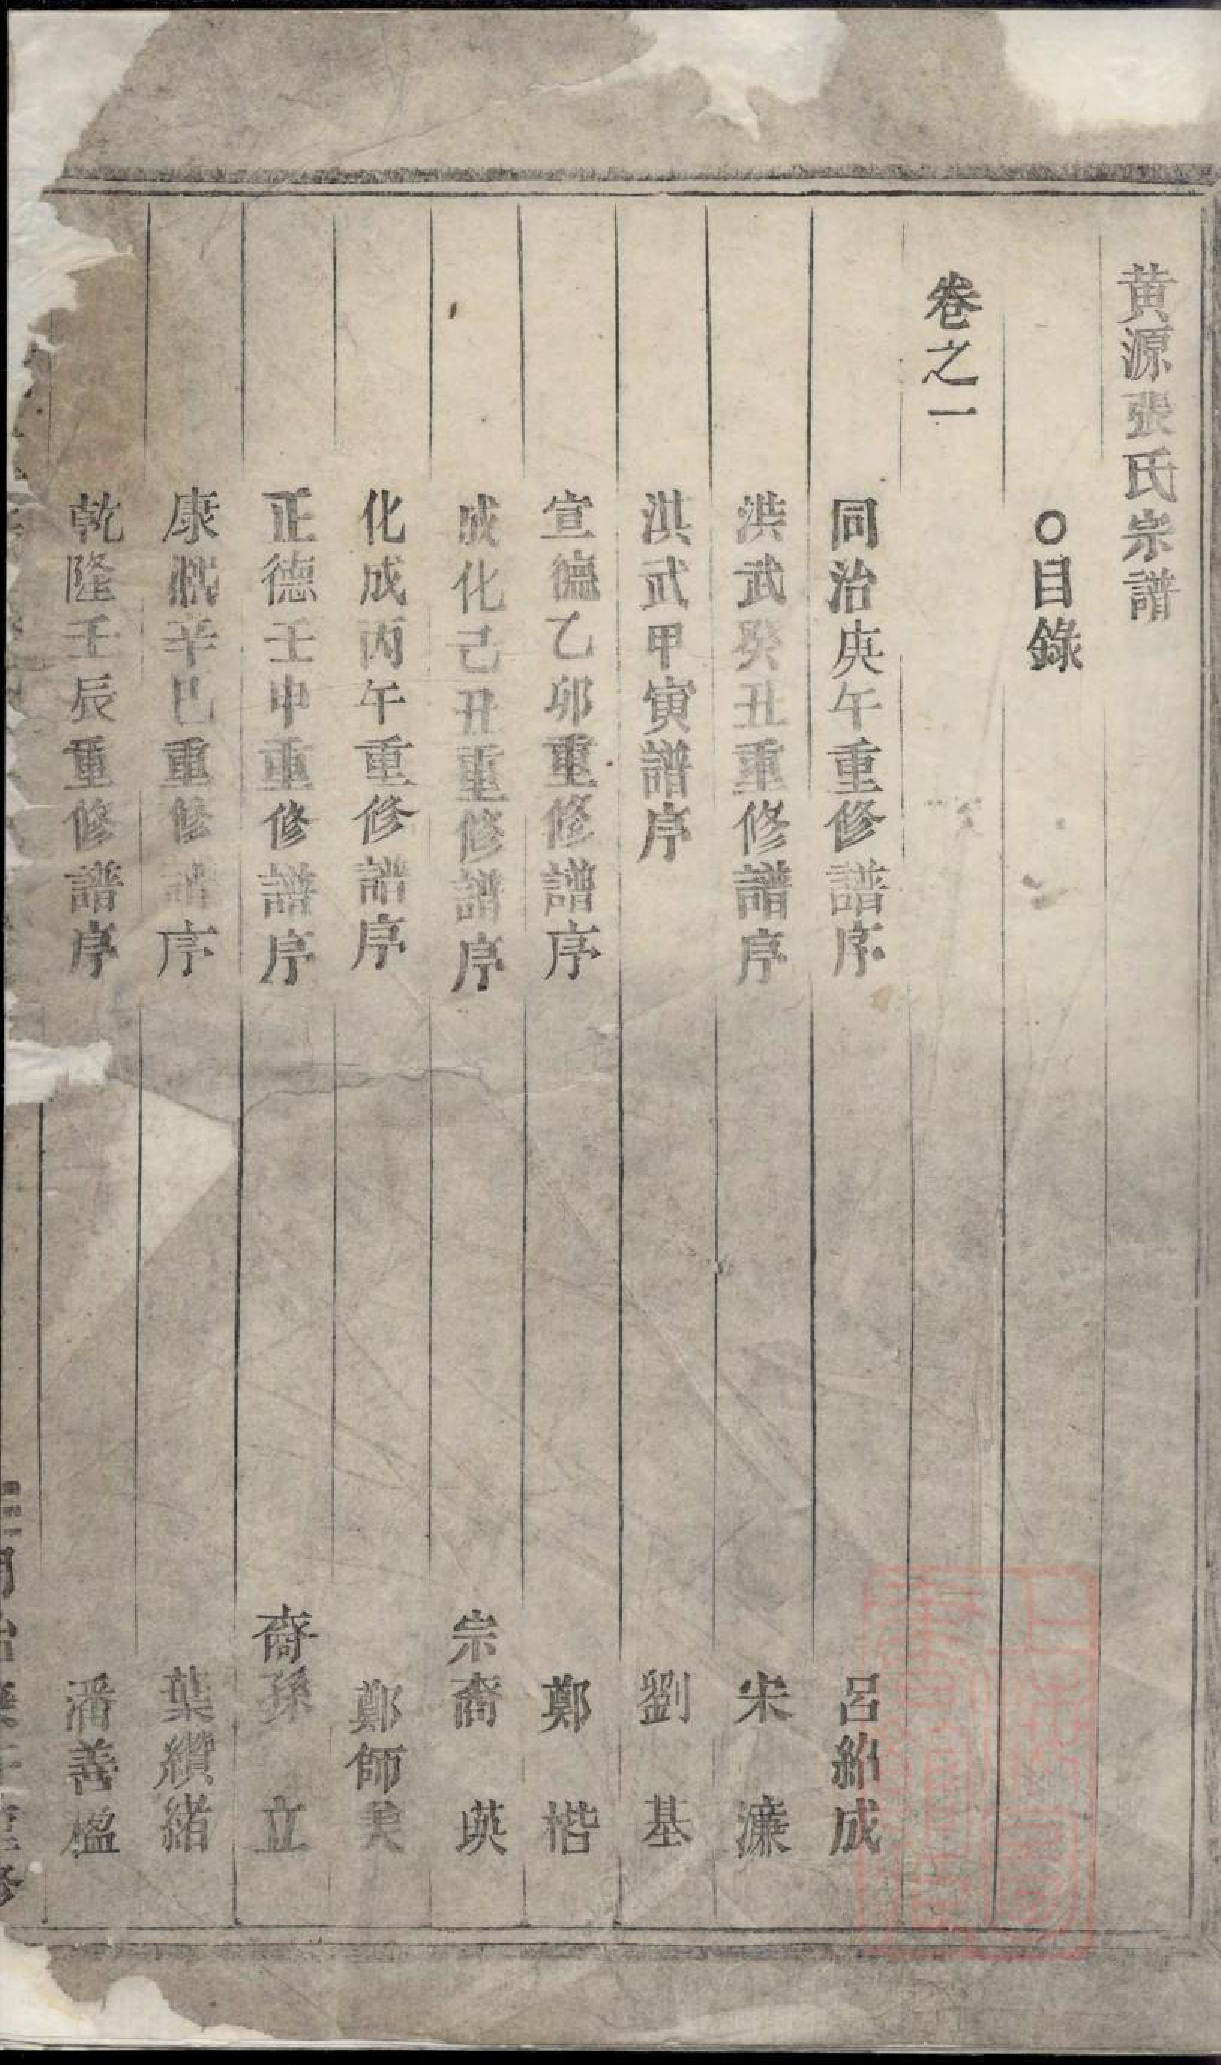 黃源張氏宗譜
○目錄
卷之一
同治庚午重修譜序 呂紹成
洪武癸丑重修譜序 宋濂
洪武甲寅譜序 劉基
宣德乙卯重修譜序 鄭楷
成化己丑重修譜序 宗裔 英
化成丙午重修譜序 鄭師
正德壬申重修譜序 裔孫 立
康熙辛巳重修譜序 葉纘緒
乾隆壬辰重修譜序 潘善楹